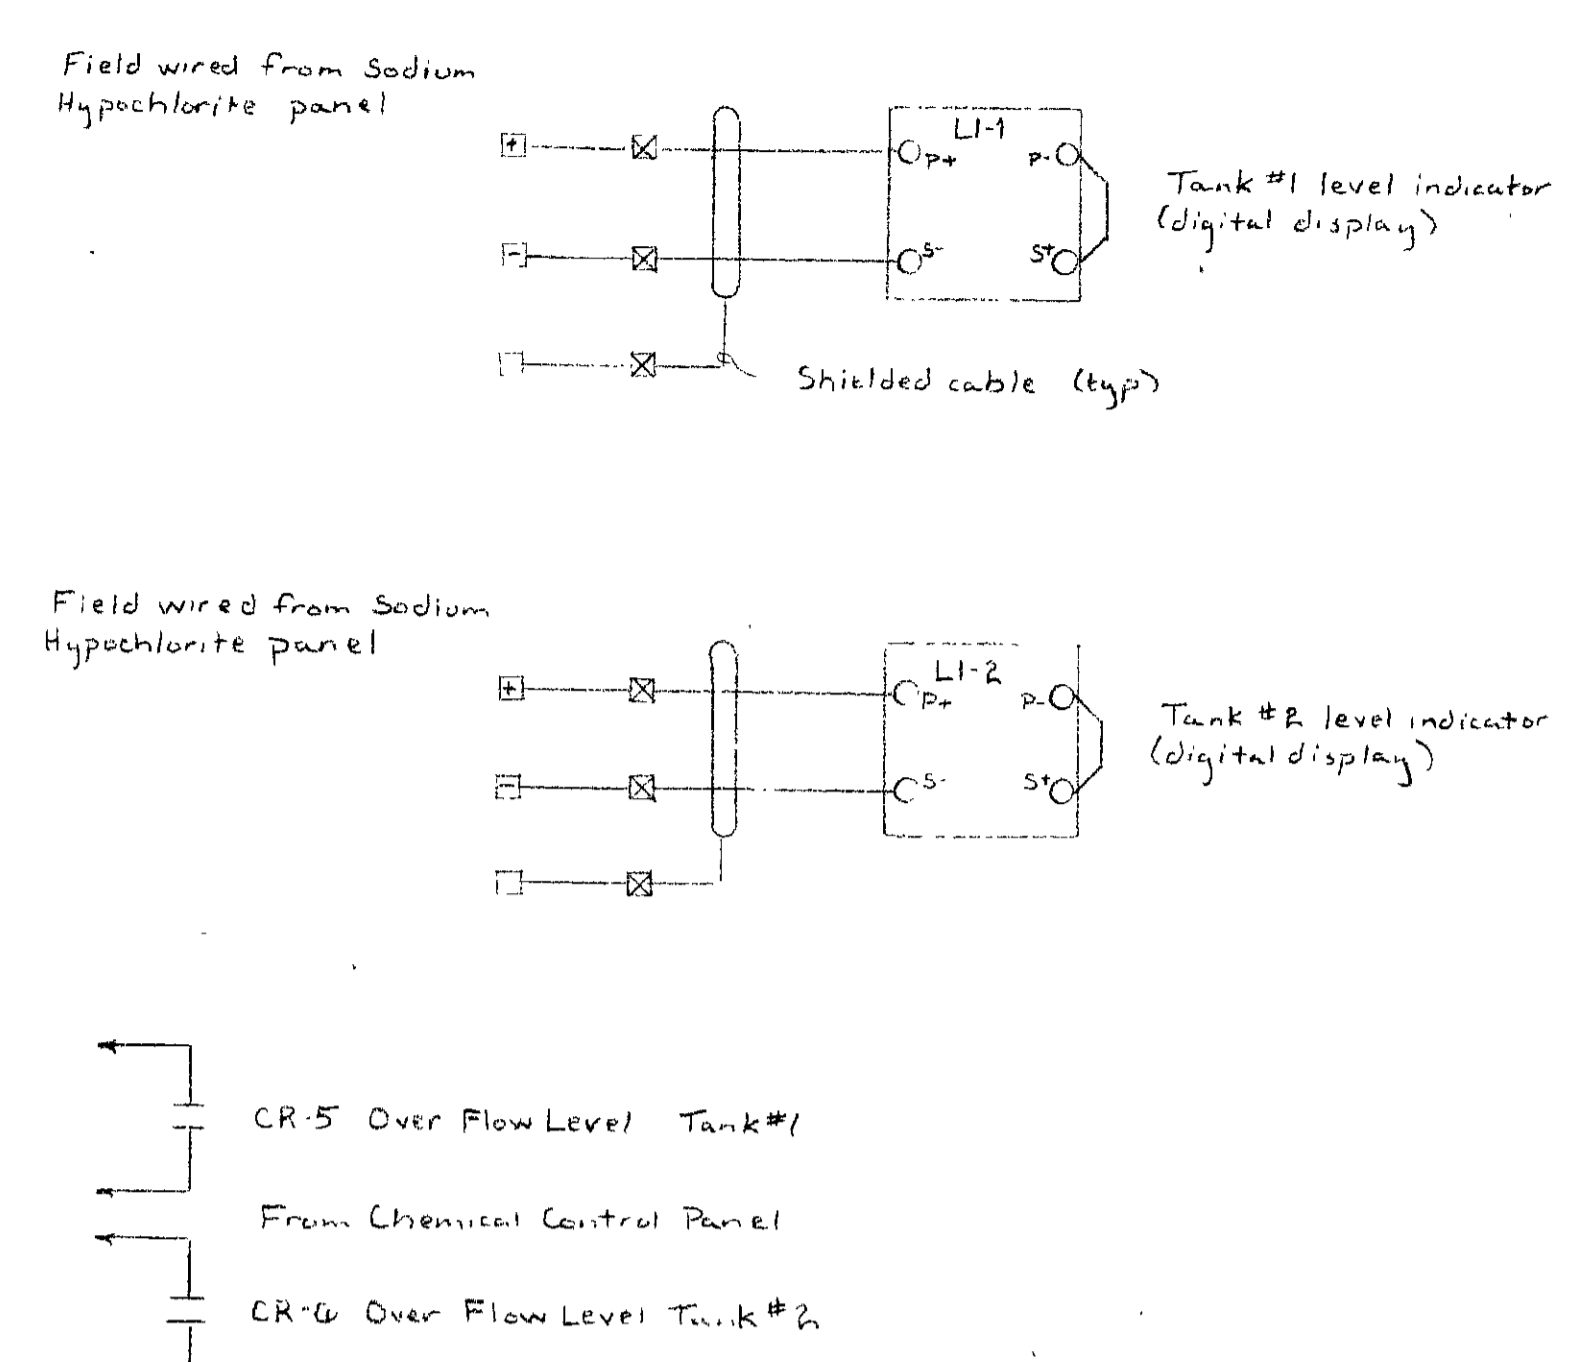 Field wired from Sodium
Hypochlorite panel
+
LI-1
P+
P-
Tank #1 level indicator
(digital display)
-
S-
S+
Shielded cable (typ)
Field wired from Sodium
Hypochlorite panel
+
LI-2
P+
P-
Tank #2 level indicator
(digital display)
-
S-
S+
CR-5 Over Flow Level Tank #1
From Chemical Control Panel
Over Flow Level Tank #2